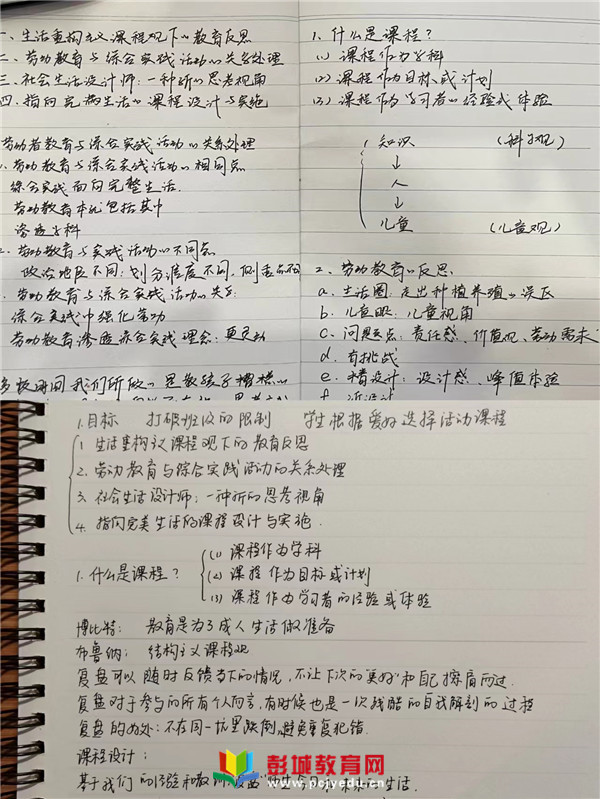 一、生活重构主义课程观下的教育反思
二、劳动教育与综合实践活动的关系处理
三、社会生活设计师:一种新的思考视角
四、指向完满生活的课程设计与实施
劳动者教育与综合实践活动的关系处理
劳动教育与综合实践活动的相同点
综合实践面向完整生活
劳动教育本就包括其中
渗透学科
劳动教育与实践活动的不同点
政治地位不同;划分维度不同,侧重点不同
劳动教育与综合实践活动的关系
综合实践中强化劳动
劳动教育渗透综合实践理念:更灵动
我们所做的是教孩子
1. 什么是课程?
(1) 课程作为学科
(2) 课程作为目标或计划
(3) 课程作为学习者的经验或体验
知识 (科学观)
↓
人
↓
儿童 (儿童观)
2. 劳动教育的反思
a. 生活圈:走出种植养殖的误区
b. 儿童眼:儿童视角
c. 问题点:责任感、价值观、劳动需求
d. 有挑战
e. 精设计:设计感、峰值体验
1.目标 打破班级的限制 学生根据爱好选择活动课程
1 生活重构主义课程观下的教育反思
2. 劳动教育与综合实践活动的关系处理
3. 社会生活设计师:一种新的思考视角
4. 指向完美生活的课程设计与实施.
1. 什么是课程?
(1) 课程作为学科
(2) 课程作为目标或计划
(3) 课程作为学习者的经验或体验
博比特: 教育是为了成人生活做准备
布鲁纳: 结构主义课程观
复盘可以随时反馈当下的情况,不让下次的美好和自己擦肩而过.
复盘对于参与的所有个人而言,有时候也是一次残酷的自我解剖的过程
复盘的好处:不在同一坑里跌倒,避免重复犯错.
课程设计:
基于我们的经验和教训,
生活.
彭城教育网
www.pcjyedu.cn